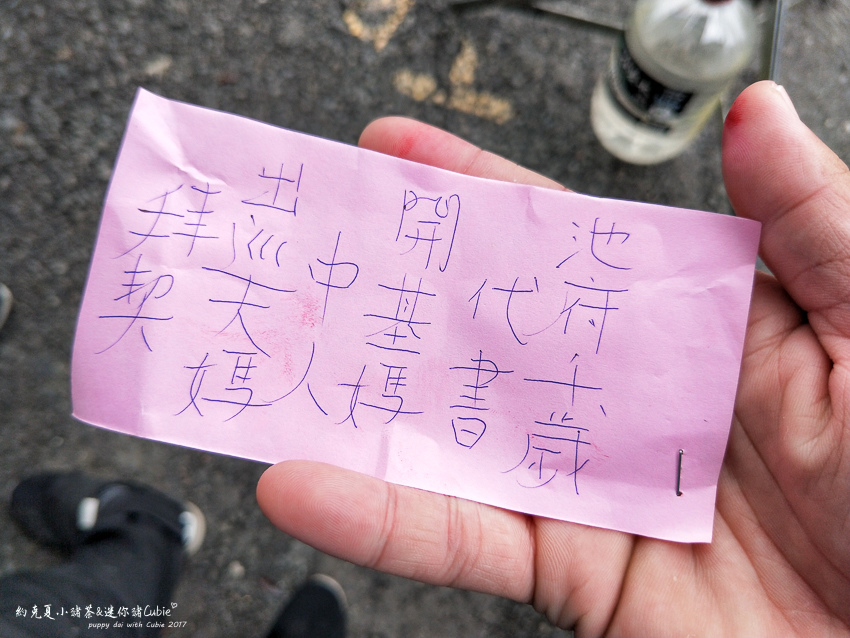 池府千歲
代書
開基媽
中人
出巡大媽
拜契
約克夏小諸茶&迷你諸Cubie♡
puppy dai with Cubie 2017